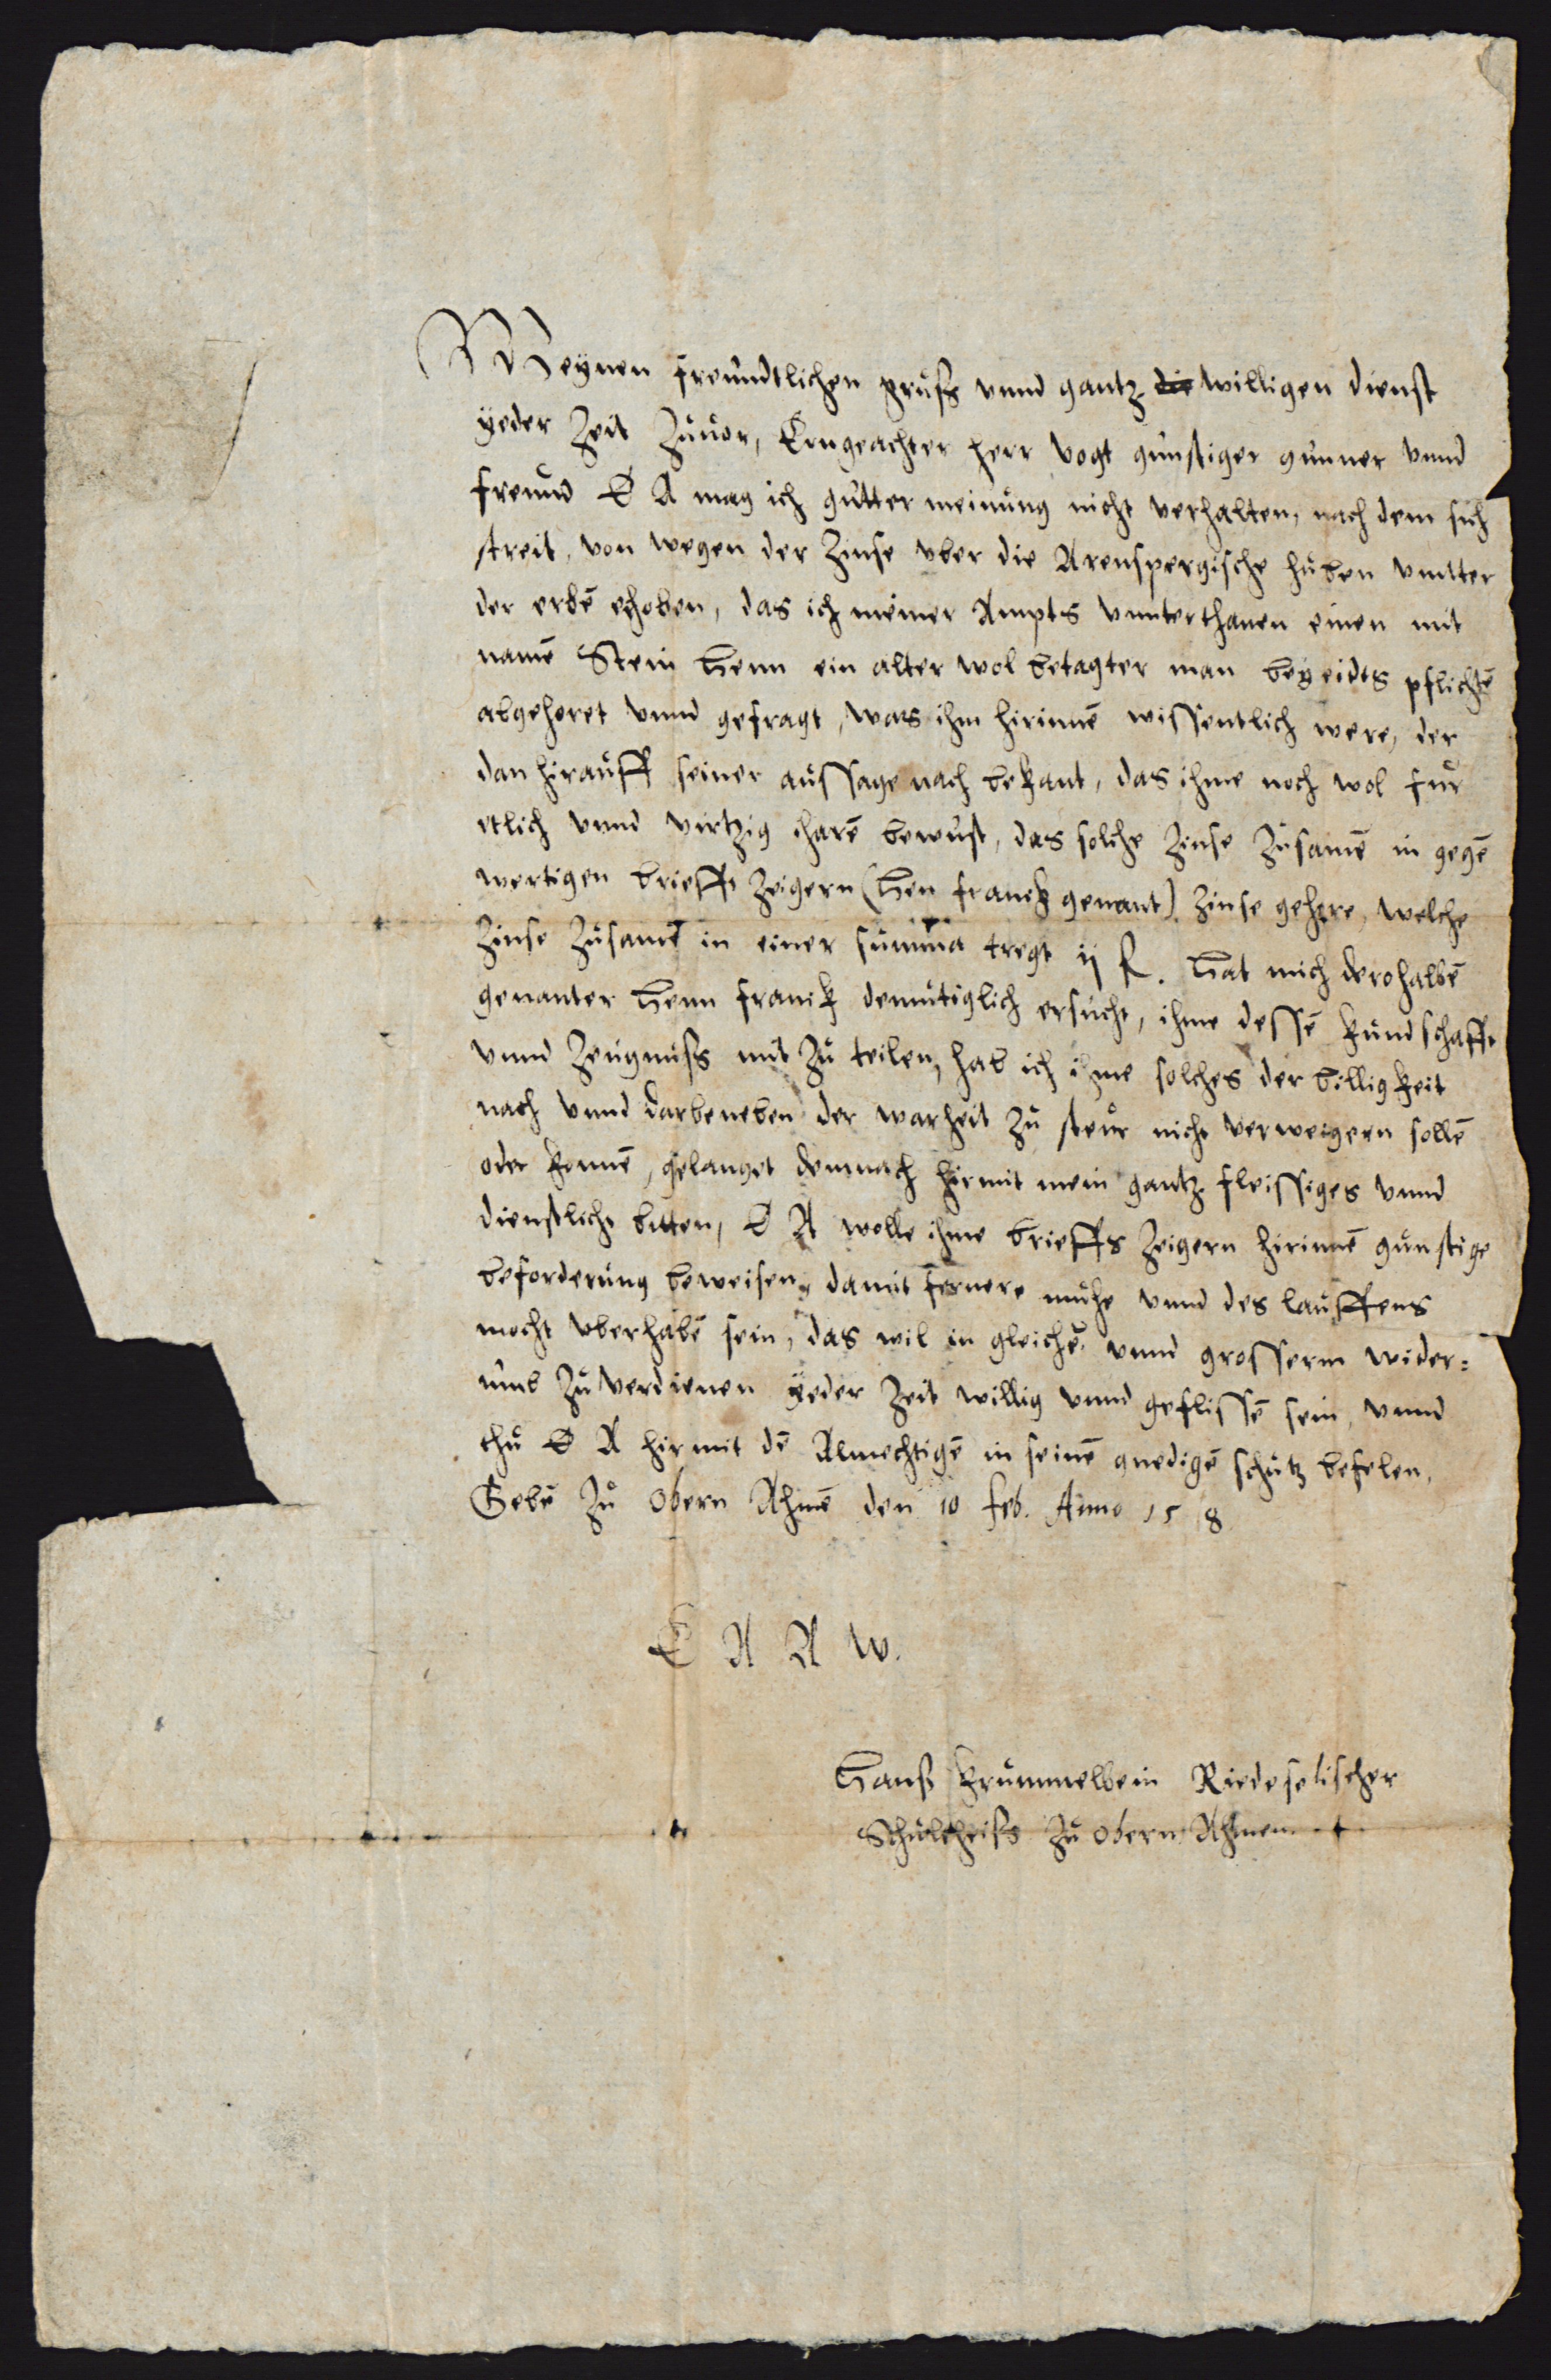 Meynen freundtlichen gruß vnnd gantz die willigen dienst
yeder Zeit zuuor, Erngeachter herr Vogt gunstiger gunner vnnd
freund E A mag ich gutter meinung nicht verhalten, nach dem sich
streit, von wegen der Zinse vber die Arenspergische huben vnntter
der erbē erhoben, das ich meiner Ampts vnnterthanen einen mit
namē Stein Henn ein alter wol betagter man bey eidts pflichtē
abgehoret vnnd gefragt, was ihm hirinnē wissentlich were, der
dan hirauff seiner aussage nach bekant, das ihme noch wol fur
etlich vnnd virtzig iharē bewust, das solche Zinse zusamē in gegē
wertigen brieffs zeigern (Hen franck genant) Zinse gehere, welche
Zinse zusamē in einer summa tregt ij fl. Hat mich derohalbē
genanter Henn franck demutiglich ersucht, ihme dessē kundschafft
vnnd Zeugnuß mit zu teilen, hab ich ihme solches der billigkeit
nach vnnd darbeneben der warheit zu steur nicht verweigern sollē
oder konnē, gelanget demnach hirmit mein gantz fleissiges vnnd
dienstlichs bitten, E A wolle ihme brieffs zeigern hirinnē gunstige
beforderung beweisen, damit fernere muhe vnnd des lauffens
mocht vberhabē sein, das wil in gleichē vnnd grosserm wider=
umb zu verdienen yeder Zeit willig vnnd geflissē sein, vnnd
thu E A hirmit dē Almechtigē in seinē gnedigē schutz befelen,
Gebē zu Obern Ahmē den 10 feb. Anno 15 8
E A A W.
Hanß Krummelbein Riedeselischer
Schultheiß zu Obern Ahmen